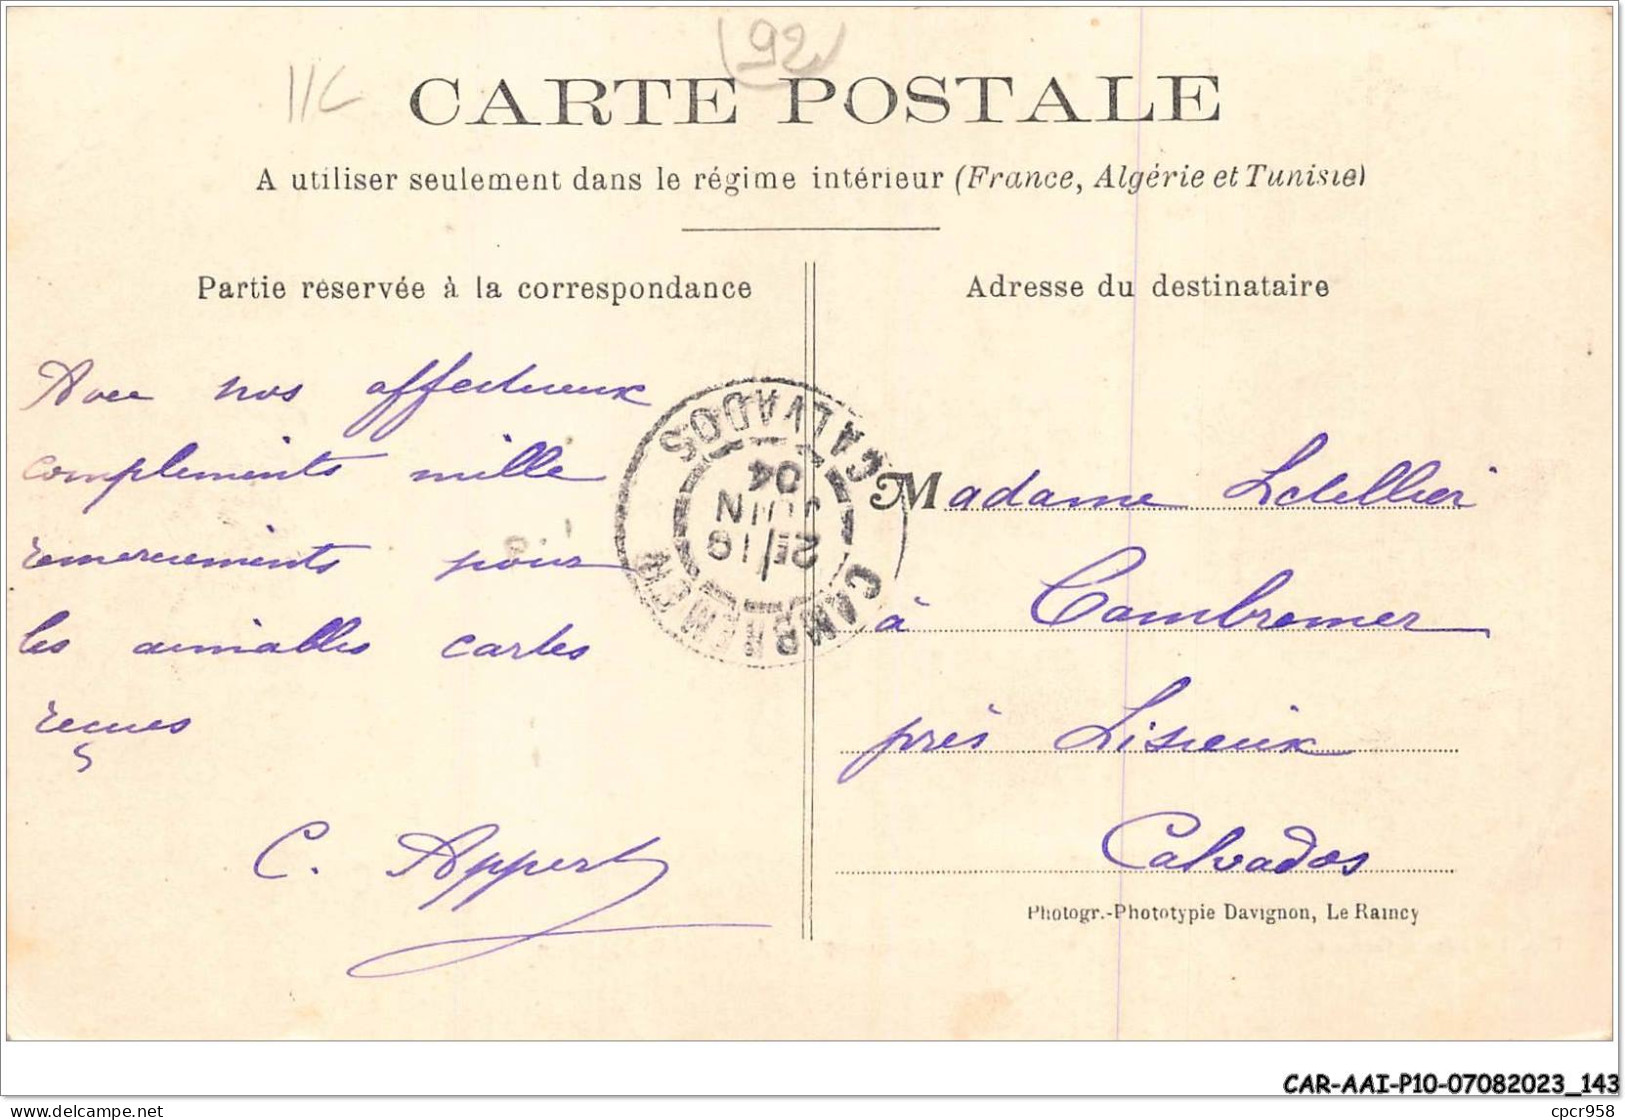 (92)
CARTE POSTALE
A utiliser seulement dans le régime intérieur (France, Algérie et Tunisie)
Partie réservée à la correspondance
Avec nos affectueux
compliments mille
remerciements pour
les aimables cartes
reçues
C. Appert
CAMBREMER
21/18
JUIN
04
CALVADOS
Adresse du destinataire
Madame Letellier
à Cambremer
près Lisieux
Calvados
Photogr.-Phototypie Davignon, Le Raincy
CAR-AAI-P10-07082023_143
https://www.delcampe.net
cpcr958